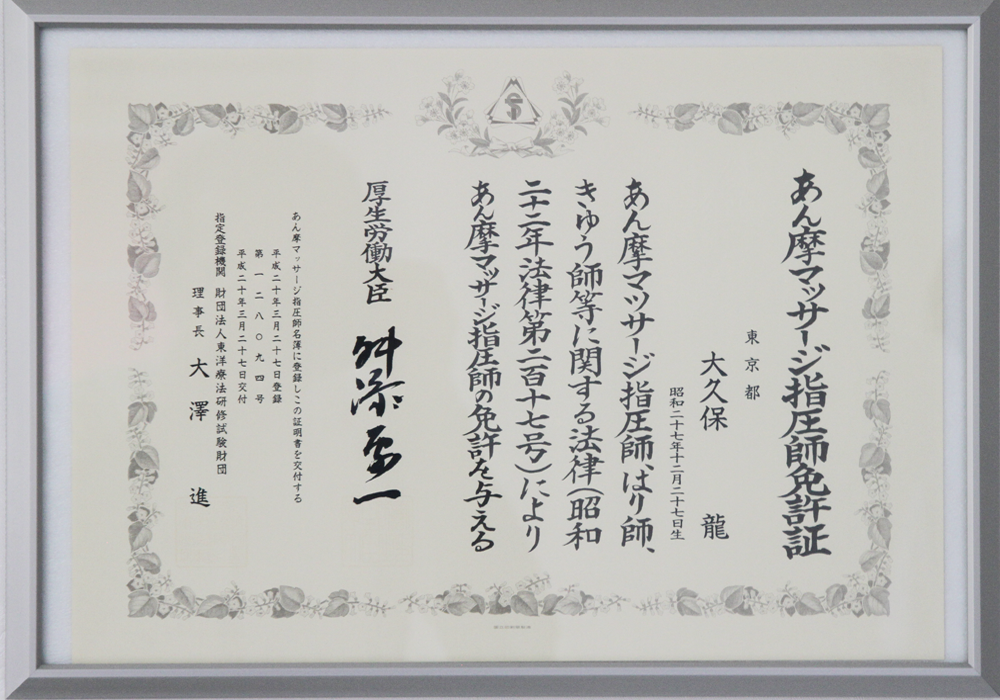 あん摩マッサージ指圧師免許証
東京都
大久保 龍
昭和二十七年十二月二十七日生
あん摩マツサージ指圧師、はり師、
きゆう師等に関する法律(昭和
二十二年法律第二百十七号)により
あん摩マッサージ指圧師の免許を与える
厚生労働大臣 舛添要一
あん摩マッサージ指圧師名簿に登録しこの証明書を交付する
平成二十年三月二十七日登録
第一二八〇九四号
平成二十年三月二十七日交付
指定登録機関 財団法人東洋療法研修試験財団
理事長 大澤 進